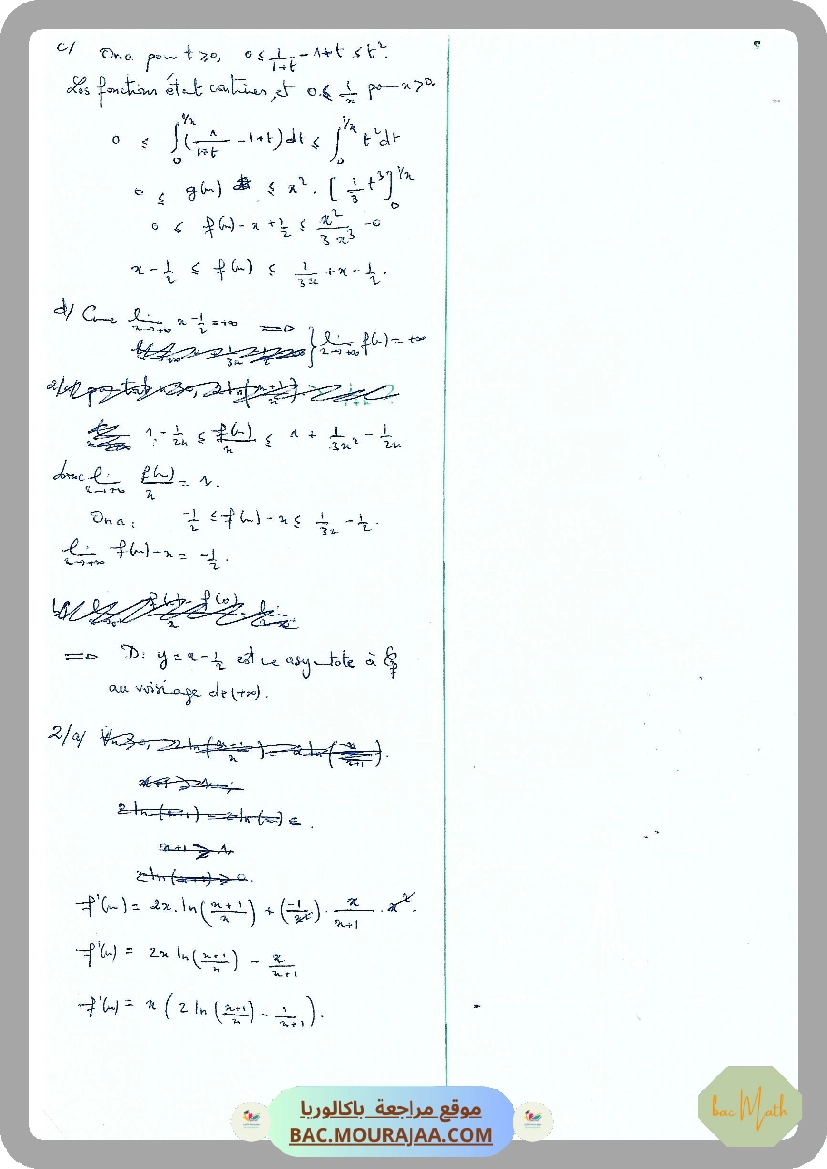 c/ On a pour t ≥ 0, 0 ≤ 1/(1+t) - 1+t ≤ t².
Les fonctions étant continues, et 0 ≤ 1/x pour x > 0.
0 ≤ ∫₀^(1/x) (1/(1+t) - 1+t) dt ≤ ∫₀^(1/x) t² dt
0 ≤ g(x) ≤ x² · [1/3 t³]₀^(1/x)
0 ≤ f(x) - x + 1/2 ≤ x²/(3x³) - 0
x - 1/2 ≤ f(x) ≤ 1/(3x) + x - 1/2.
d/ Comme lim x→+∞ x - 1/2 = +∞ ⟹ } lim x→+∞ f(x) = +∞
1 - 1/(2x) ≤ f(x)/x ≤ 1 + 1/(3x²) - 1/(2x)
donc lim x→+∞ f(x)/x = 1.
On a: -1/2 ≤ f(x) - x ≤ 1/(3x) - 1/2.
lim x→+∞ f(x) - x = -1/2.
⟹ D: y = x - 1/2 est une asymptote à ζf
au voisinage de (+∞).
2/a/
f'(x) = 2x.ln((x+1)/x) + (-1/x²) · x/(x+1) · x².
f'(x) = 2x ln((x+1)/x) - x/(x+1)
f'(x) = x (2 ln((x+1)/x) - 1/(x+1)).
موقع مراجعة باكالوريا
BAC.MOURAJAA.COM
bac Math